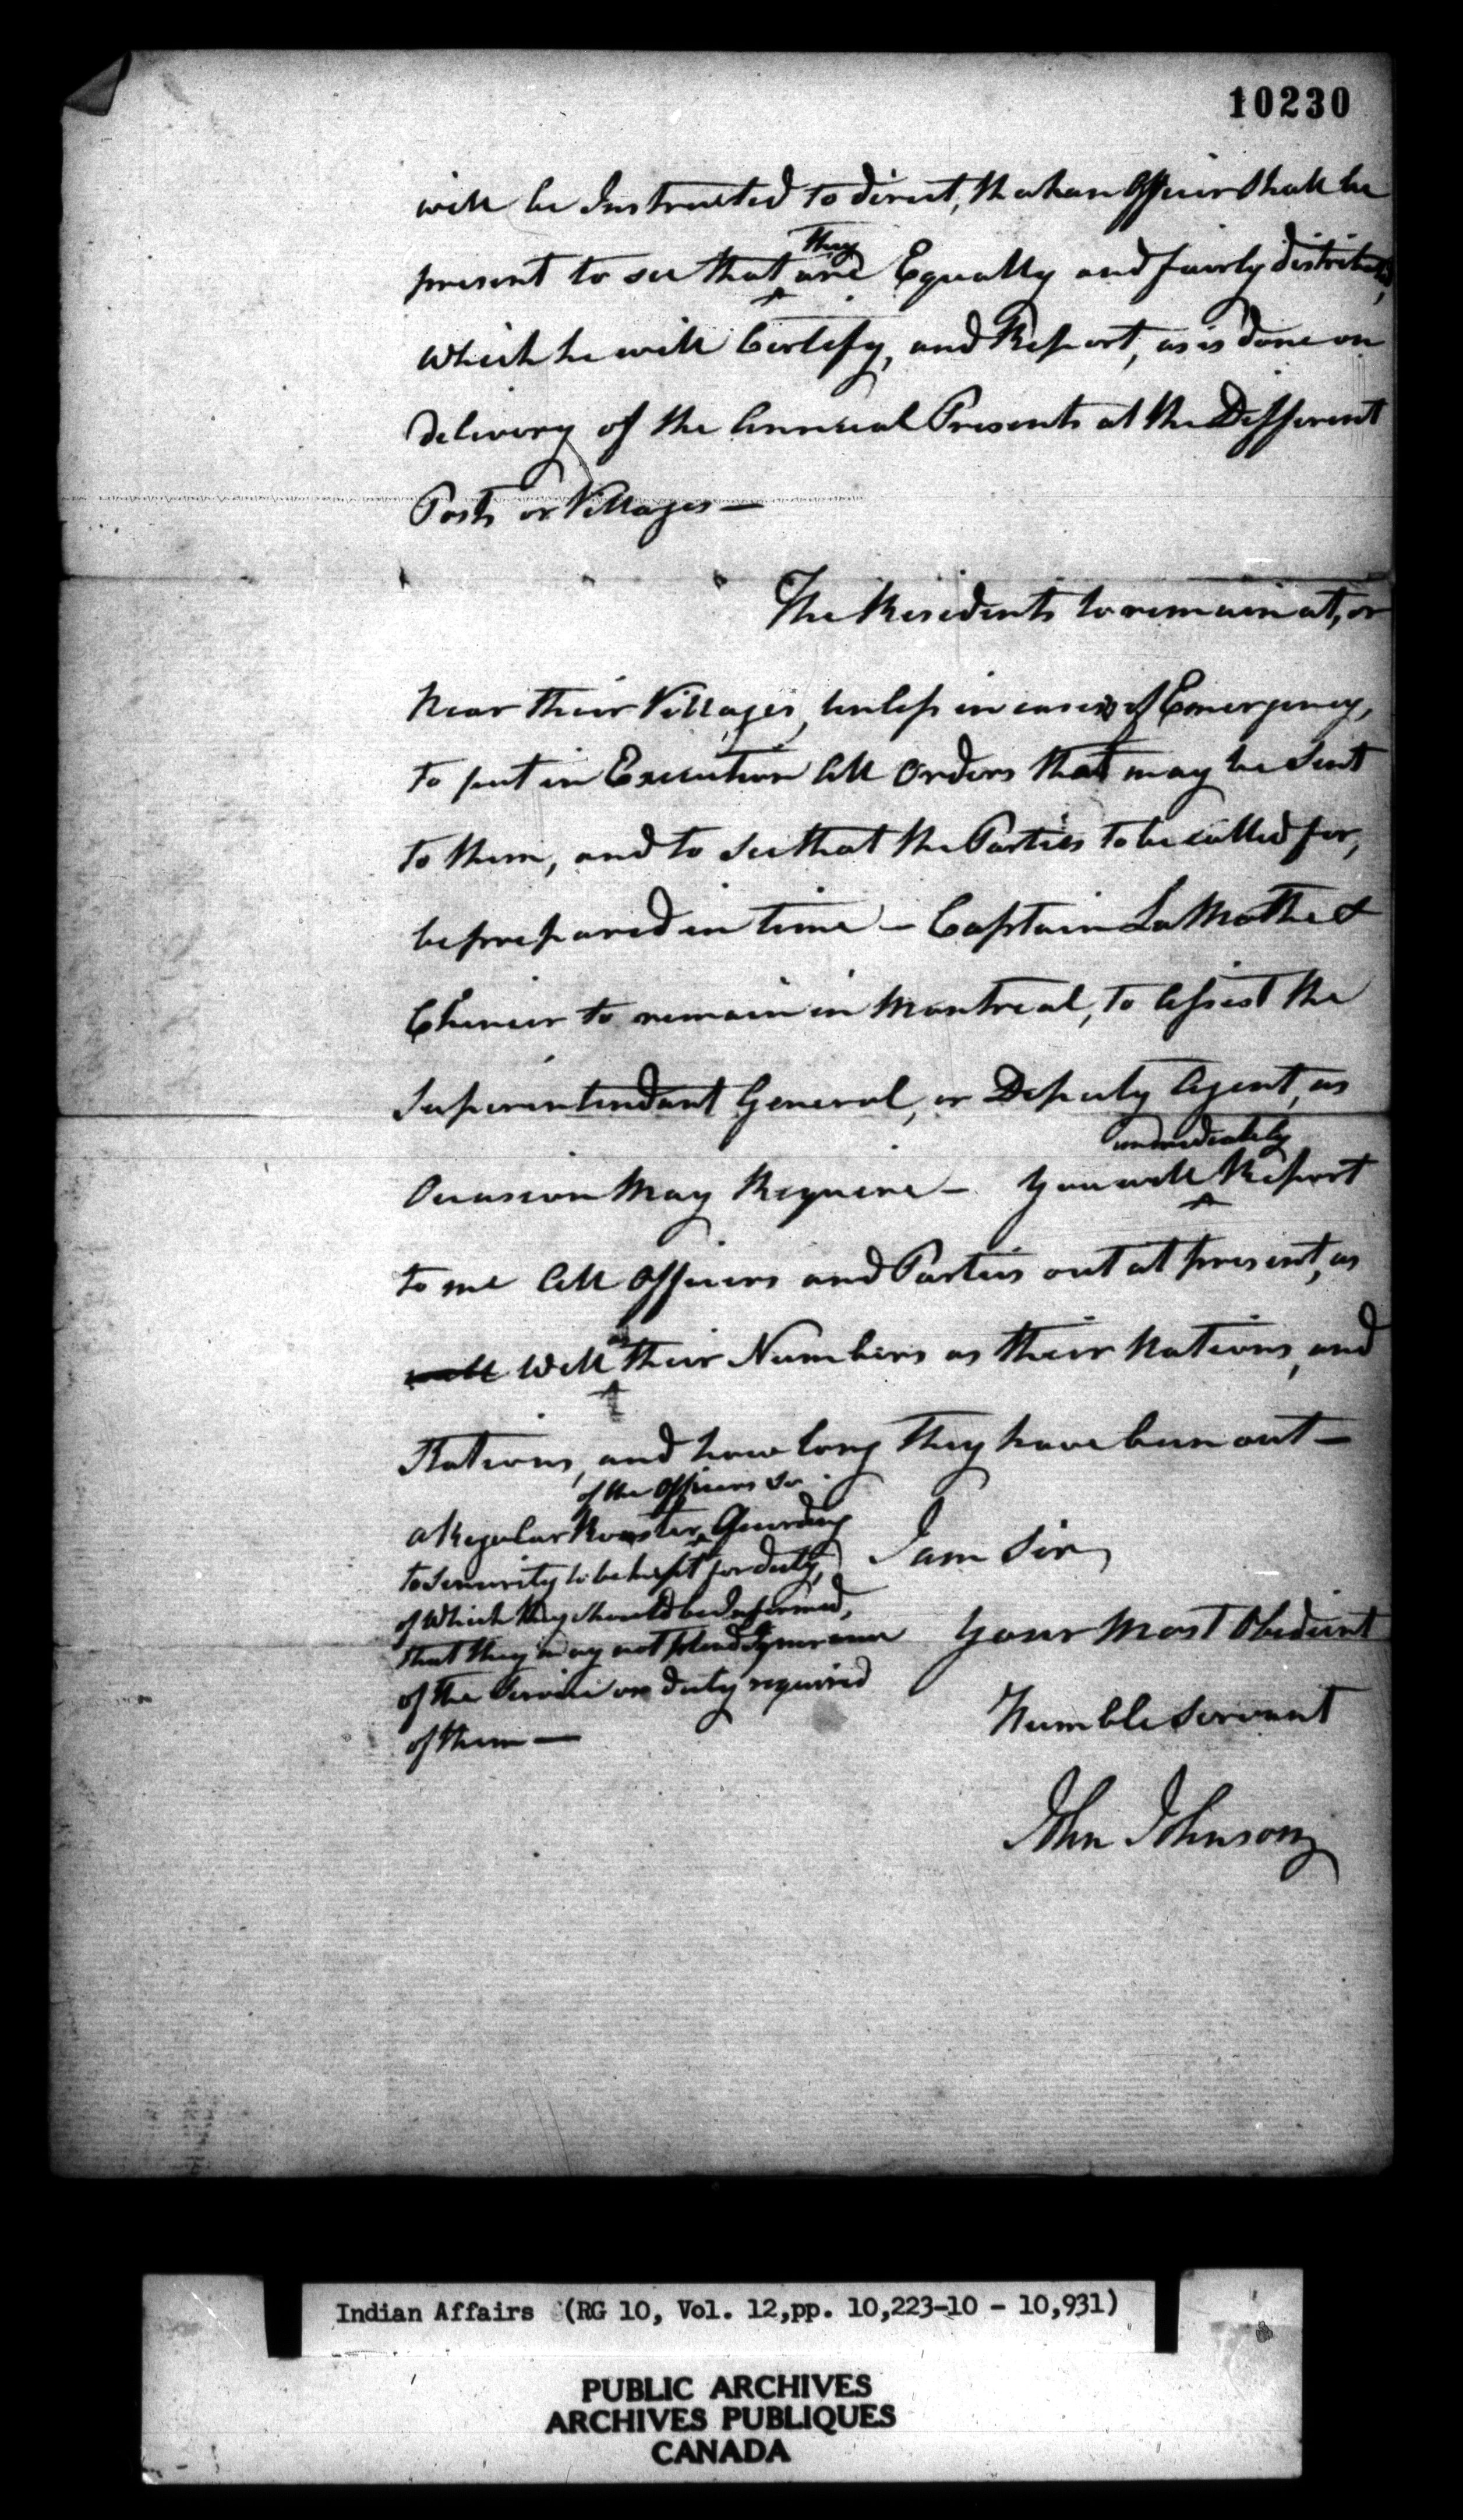 10230
will be Instructed to direct, that an Officer shall be
they
present to see that are Equally and fairly distributed,
which he will Certify, and Report, as is done on
delivery of the Annual Presents at the Different
Posts or Villages —
The Residents to remain at, or
Near their Villages, unless in cases of Emergency,
to put in Execution All Orders that may be Sent
to them, and to see that the Parties to be called for,
be prepared in time — Captain La Mothe &
Chenier to remain in Montreal, to Assist the
Superintendant General, or Deputy Agent, as
immediately
Occasion May Require — You will Report
to me All Officers and Parties out at present, as
as
well Well their Numbers as their Nations, and
Stations, and how long they have been out —
of the Officers
a Regular Roster
to Seniority to be kept for duty,
of which they should be Informed,
that they may not plead Ignorance
of the Service or duty required
of them —
I am Sir
Your Most Obedient
Humble Servant
John Johnson
Indian Affairs (RG 10, Vol. 12, pp. 10,223-10 - 10,931)
PUBLIC ARCHIVES
ARCHIVES PUBLIQUES
CANADA